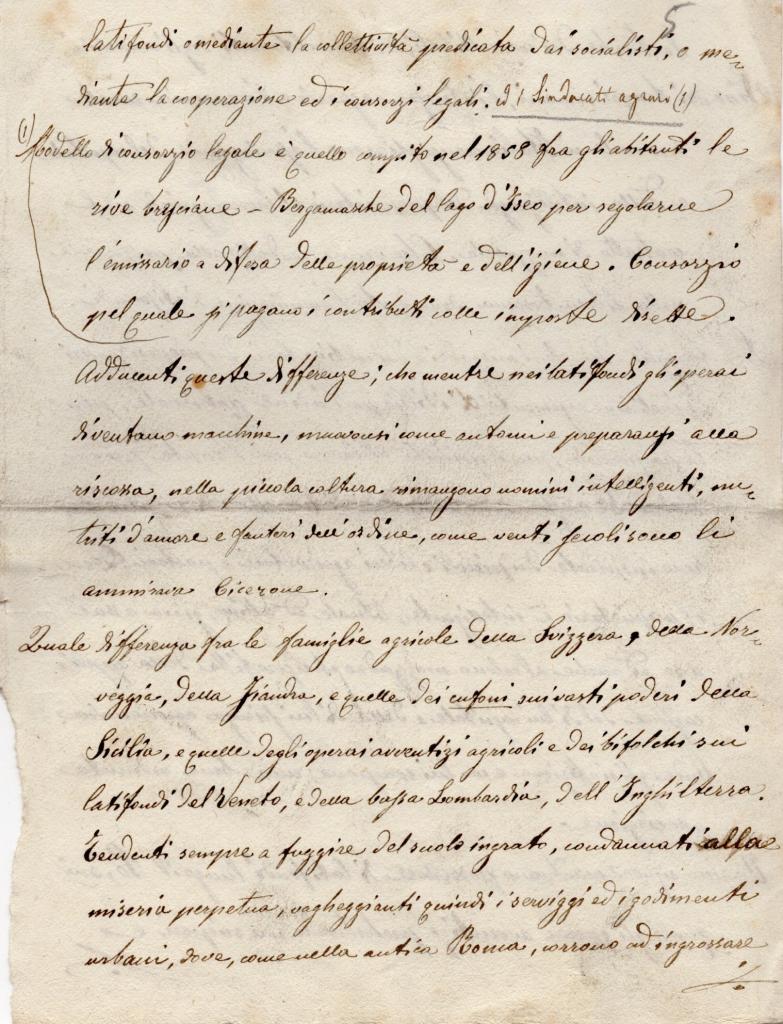 5
latifondi o mediante la collettività predicata dai socialisti, o me-
diante la cooperazione ed i consorzi legali. ed i Sindacati agrari (1)
(1) Modello di consorzio legale è quello compito nel 1858 fra gli abitanti le
rive bresciane - Bergamasche del lago d'Iseo per regolarne
l'emissario a difesa delle proprietà e dell'igiene. Consorzio
pel quale si pagano i contributi colle imposte dirette.
Adducenti queste differenze; che mentre nei latifondi gli operai
diventano macchine, muovonsi come automi e preparansi alla
riscossa, nella piccola coltura rimangono uomini intelligenti, nu-
triti d'amore e fautori dell'ordine, come venti secoli sono li
ammirava Cicerone.
Quale differenza fra le famiglie agricole della Svizzera, della Nor-
veggia, della Fiandra, e quelle dei cafoni sui vasti poderi della
Sicilia, e quelle degli operai avventizi agricoli e dei bifolchi sui
latifondi del Veneto, e della bassa Lombardia, dell'Inghilterra.
Tendenti sempre a fuggire del suolo ingrato, condannati alla
miseria perpetua, vagheggianti quindi i serviggi ed i godimenti
urbani, dove, come nella antica Roma, corrono ad ingrossare